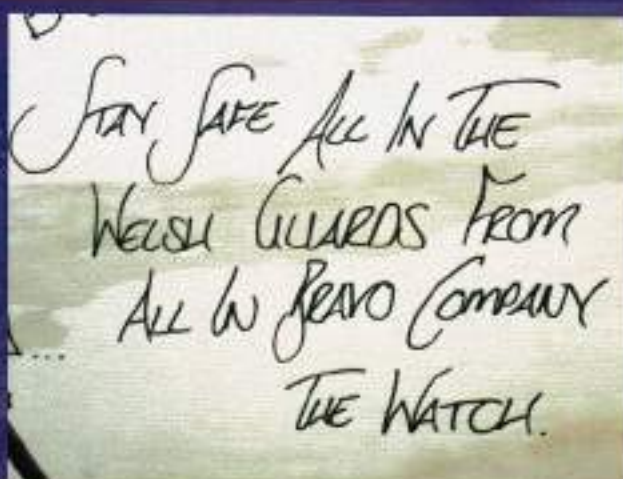 STAY SAFE ALL IN THE
WELSH GUARDS FROM
ALL IN BRAVO COMPANY
THE WATCH.